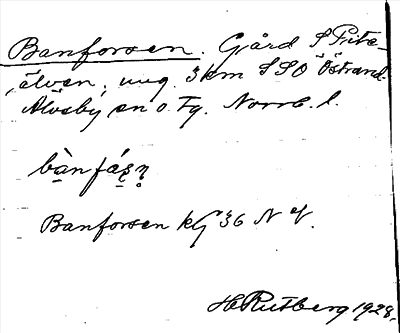 Banforsen. Gård S Pite-
älven, ung. 3 km SSO Östrand.
Älvsby sn o. Tg. Norrb. l.
bàn fás̩?
Banforsen kG 36 N V.
H Rutberg 1928.